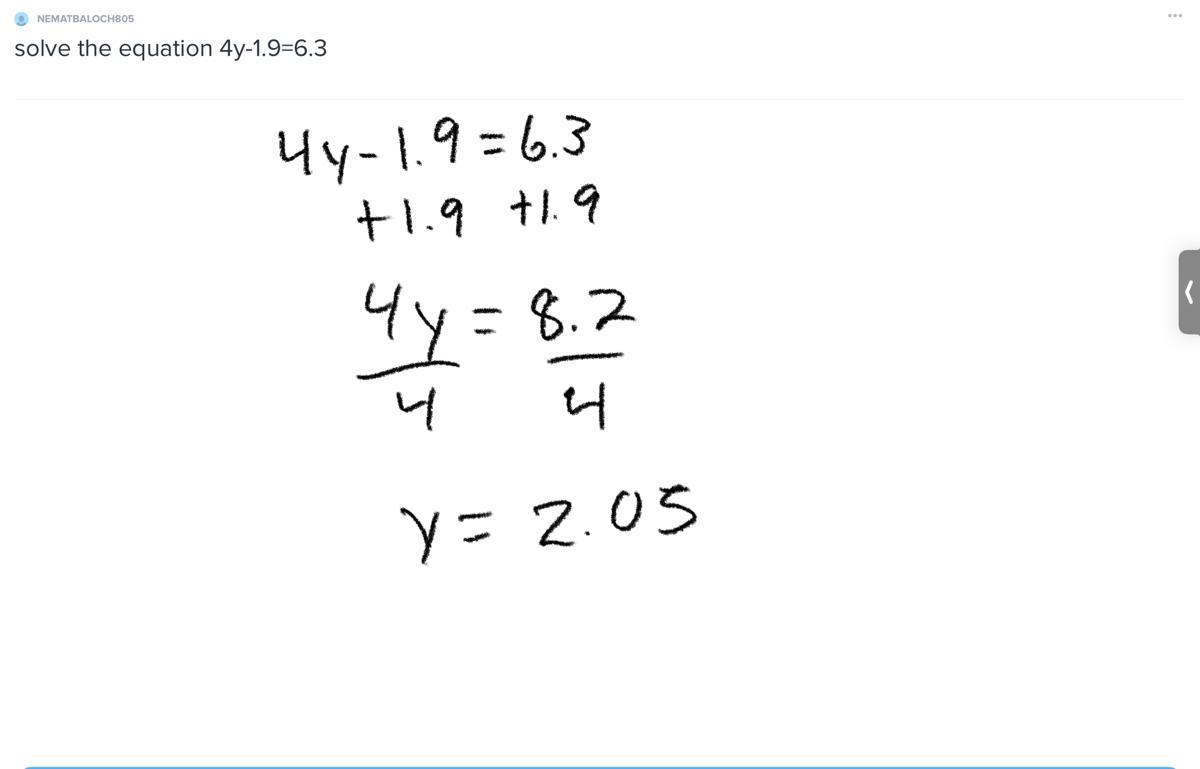 NEMATBALOCH805
solve the equation 4y-1.9=6.3
4y-1.9=6.3
+1.9 +1.9
4y = 8.2
4 4
y = 2.05